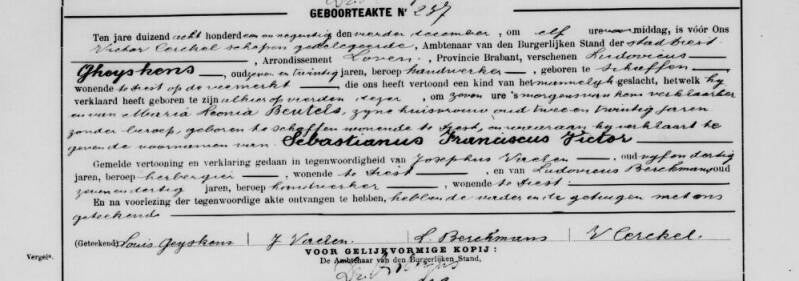 GEBOORTEAKTE Nr 257
Ten jare duizend acht honderd een en negentig den vierden december, om elf ure voormiddag, is vóór Ons
Victor Cerckel schepen gedelegeerde, Ambtenaar van den Burgerlijken Stand der stad Diest
Arrondissement Loven, Provincie Brabant, verschenen Ludovicus
Gheyskens, oud zeven en twintig jaren, beroep handwerker, geboren te Schaffen
wonende te Diest op de veemerkt, die ons heeft vertoond een kind van het mannelijk geslacht, hetwelk hy
verklaard heeft geboren te zijn alhier op vierden dezer, om zeven ure 's morgens van hem verklaarder
en van Maria Leonia Beutels, zyne huisvrouw oud twee en twintig jaren
zonder beroep, geboren te Schaffen wonende te Diest, en waeraan hy verklaart te
geven de voornamen van Sebastianus Franciscus Victor
Gemelde vertooning en verklaring gedaan in tegenwoordigheid van Josephus Vraelen, oud vyf en dertig
jaren, beroep herbergier, wonende te Diest, en van Ludovicus Berckmans, oud
zeven en dertig jaren, beroep handwerker, wonende te Diest:
En na voorlezing der tegenwoordige akte ontvangen te hebben, hebben de vader en de getuigen met ons
geteekend
(Geteekend) Louis Geyskens J Vraelen L. Berckmans V Cerckel.
VOOR GELIJKVORMIGE KOPIJ:
Vergel\.
De Ambtenaar van den Burgerlijken Stand,